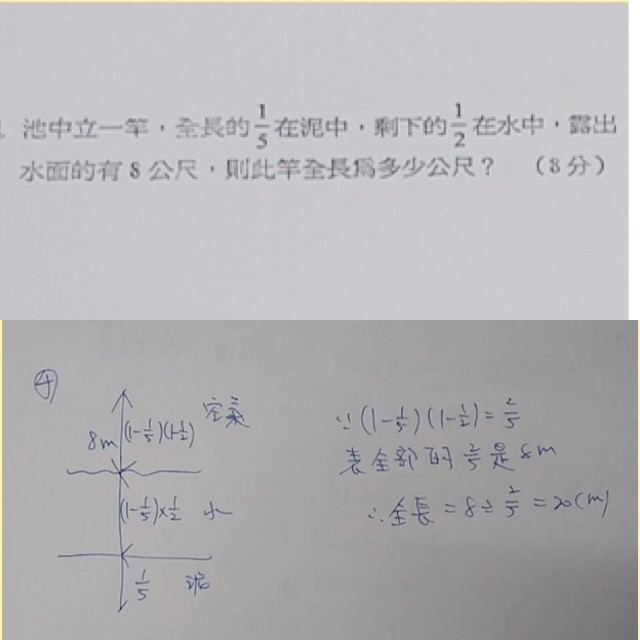 池中立一竿，全長的1/5在泥中，剩下的1/2在水中，露出
水面的有8公尺，則此竿全長為多少公尺？（8分）
④
8m (1-1/5)(1-1/2)
(1-1/5)×1/2 水
1/5 泥
∵(1-1/5)(1-1/2)=2/5
表全部的2/5是8m
∴全長=8÷2/5=20(m)